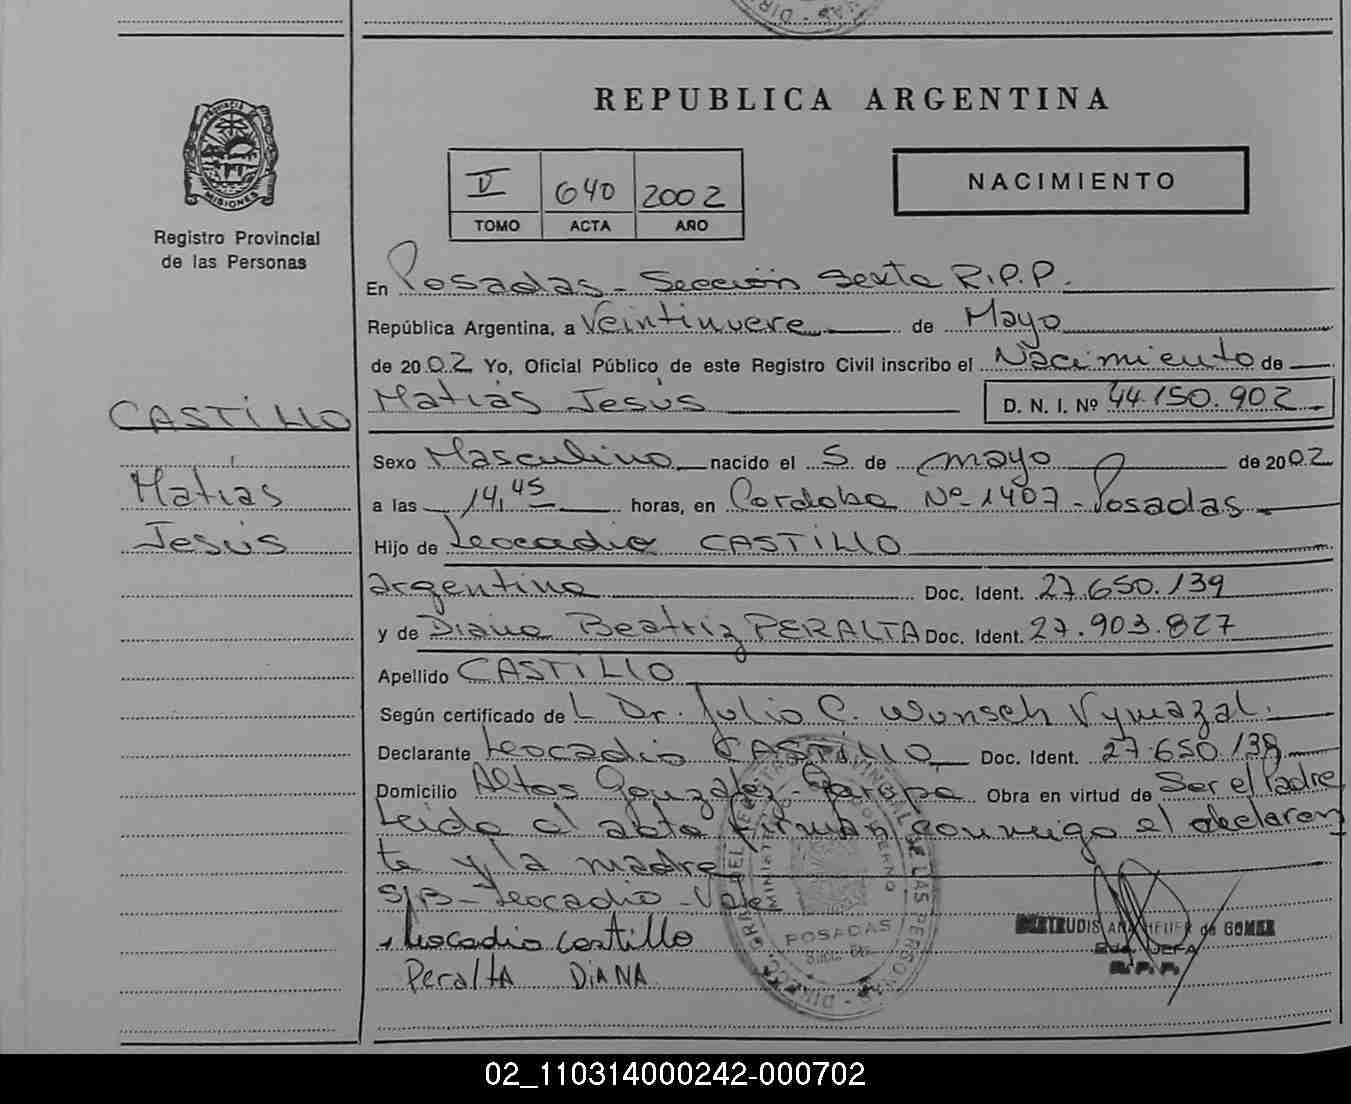 REPUBLICA ARGENTINA
PROVINCIA
MISIONES
Registro Provincial
de las Personas
II 640 2002
TOMO ACTA AÑO
NACIMIENTO
En Posadas - Sección Sexta R.P.P.
República Argentina, a Veintinueve de Mayo
de 2002 Yo, Oficial Público de este Registro Civil inscribo el Nacimiento de
Matías Jesús D. N. I. Nº 44.150.902
CASTILLO
Matías
Jesús
Sexo Masculino nacido el 5 de mayo de 2002
a las 14,45 horas, en Cordoba Nº 1407 - Posadas
Hijo de Leocadio CASTILLO
argentino Doc. Ident. 27.650.139
y de Diana Beatriz PERALTA Doc. Ident. 27.903.827
Apellido CASTILLO
Según certificado de L Dr. Julio C. Wunsch Vymazal.
Declarante Leocadio CASTILLO Doc. Ident. 27.650.139
Domicilio Altos Gonzalez - Garupa Obra en virtud de Ser el Padre
Leida el acta firman conmigo el declaran
te y la madre
S/B - Leocadio - Vale
Leocadio castillo
PeraltA DiANA
POSADAS
de GOMEZ
R.P.P.
02_110314000242-000702